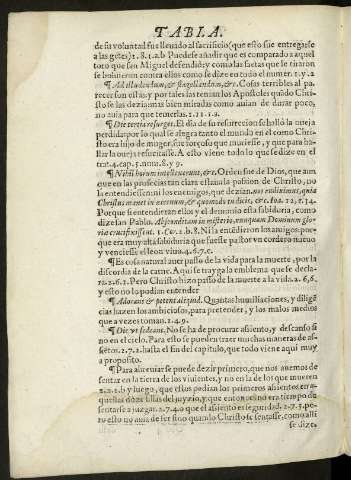 TABLA.
de su voluntad fue lleuado al sacrificio (que esto fue entregarse
a las gentes) 1.8.1.a.b Puedese añadir que es comparado a aquel
toro que san Miguel defendio, y como las saetas que le tiraron
se boluieron contra ellos como se dize en todo el numer. 1.y.2
¶ Ad illudendum, & flagellandum, &c. Cosas terribles al pa-
recer son estas, y por tales las tenian los Apostoles quãdo Chri-
sto se las dezia mas bien miradas como auian de durar poco,
no auia para que temerlas. 2.21.1.a.
¶ Die tertia resurget. El dia de su resurreccion se hallò la oueja
perdida: por lo qual se alegra tanto el mundo en el como Chri-
sto era hijo de muger, fue forçoso que muriesse, y que para ha-
llar la oueja resucitasse. A esto viene todo lo que se dize en el
trat. 4. cap. 5. num. 8. y 9.
¶ Nihil horum intellexerunt, &c. Orden fue de Dios, que aun
que en las profecias tan clara estaua la passion de Christo, no
la entendiessen ni los enemigos, que dezian, nos audiuimus, quia
Christus manet in æternum, & quomodo tu dicis, &c. Ioa. 12, c. 34.
Porque si entendieran ellos y el demonio esta sabiduria, como
dize san Pablo. Absconditam in misterio, nunquam Dominum glo-
riæ crucifixissent. 1. Co. 2. b. 8. Ni la entẽdieron los amigos, por-
que era muy alta sabiduria que fuesse pastor vn cordero nueuo
y venciesse el leon viejo. 4.6.7.c.
¶ Es cosa natural auer passo de la vida para la muerte, por la
discordia de la carne. Aqui se trayga la emblema que se decla-
ra. 2.6.2. Pero Christo hizo passo de la muerte a la vida. 2.6.6.
y esto no lo podian entender
¶ Adorans & petens aliquid. Quantas humillaciones, y diligẽ
cias hazen los ambiciosos, para pretender, y los malos medios
que a vezes toman. 1.4.9.
¶ Dic vt sedeant. No se ha de procurar assiento, y descanso si
no en el cielo. Para esto se pueden traer muchas maneras de as-
sietos. 2.7.2. hasta el fin del capitulo, que todo viene aqui muy
a proposito.
¶ Para abreuiar se puede dezir primero, que nos auemos de
sentar en la tierra de los viuientes, y no en la de los que mueren
2.2.1.b y luego, que estos pedian los primeros assientos en a-
quellas doze sillas del juyzio, y que entonces no era tiempo de
sentarse a juzgar. 2.7.4.o que el assiento es seguridad. 2.7.5. pe-
ro esto no auia de ser sino quando Christo se sentasse, como alli
se dize.